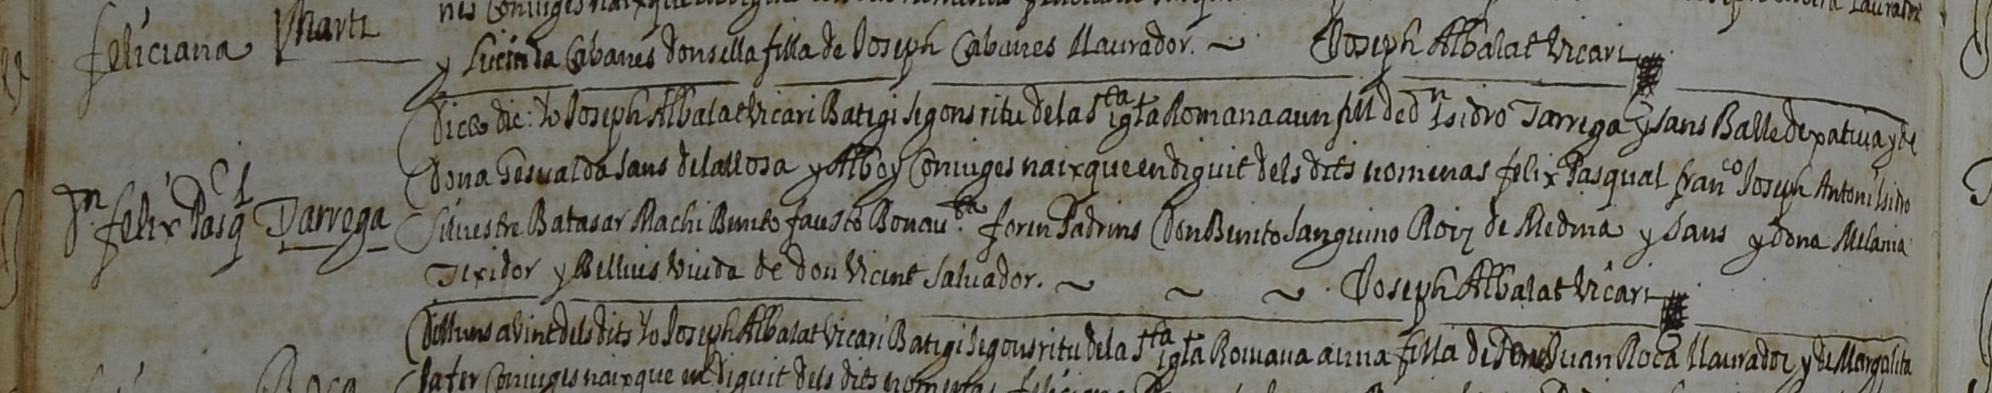 feliciana Marti
y Lucinda Cabanes donsella filla de Joseph Cabanes llaurador. ~ Joseph Albalat Vicari
Dicto die: Yo Joseph Albalat Vicari Bategi segons ritu de la S.ta igl.a Romana a un fill de d.n Isidro Tarrega y sans Balle de xativa y de
Dona Gesualda sans de la llosa y Alboy Conuiges naixque en diguit dels dits nomenas felix Pasqual fran.co Joseph Antoni Isidro
D.n felix Pasq.l Tarrega
Siluestre Batasar Machi Benito fausto Bonau.ra foren Padrins Don Benito Sanguino Roiz de Medina y sans y dona Melania
Texidor y Belluis Viuda de don Vicent Saluador. ~ ~ ~ Joseph Albalat Vicari
Dilluns a vint dels dits Yo Joseph Albalat Vicari Bategi segons ritu de la S.ta igl.a Romana a una filla de Juan Roca llaurador y de Margalita
Conuiges naixque en diguit dels dits nomenas feliciana
Roca